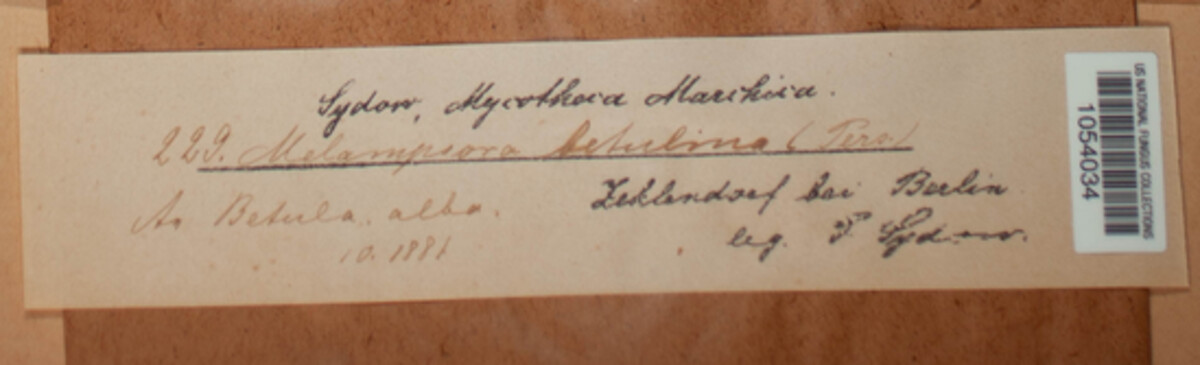 Sydow, Mycotheca Marchica.
229. Melampsora betulina (Pers.)
An Betula alba.
Zehlendorf bei Berlin
10. 1881
leg. P Sydow.
US NATIONAL FUNGUS COLLECTIONS
1054034